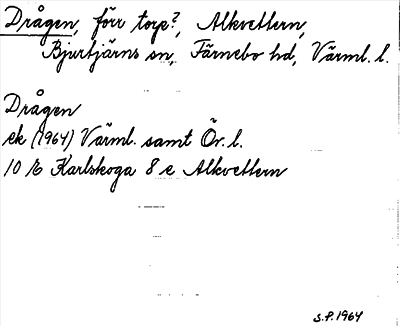 Drågen, förr torp?, Alkvettern,
Bjurtjärns sn, Färnebo hd, Värml. l.
Drågen
ek (1964) Värml. samt Ör. l.
10 E Karlskoga 8 e Alkvettern
S.P. 1964